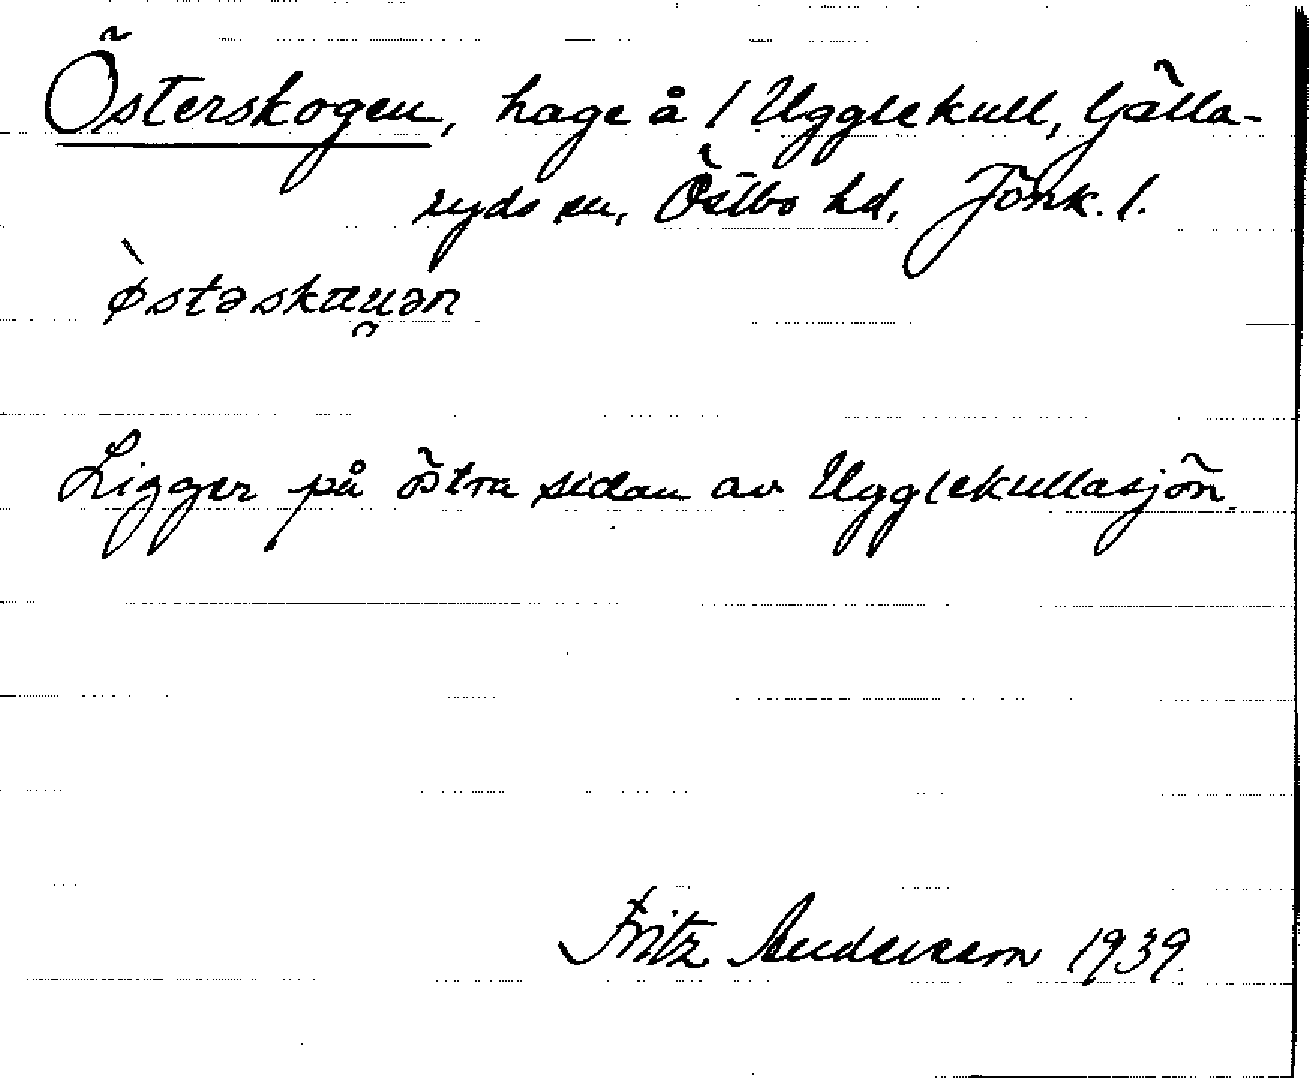 Österskogen, hage å / Ugglekull, Gälla-
ryds sn, Östbo hd, Jönk. l.
østəskau̯ən
Ligger på östra sidan av Ugglekullasjön.
Fritz Andersson 1939.